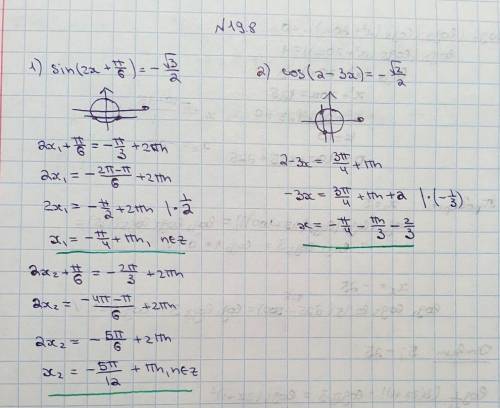 №19.8
1) sin(2x + π/6) = -√3/2
2x₁ + π/6 = -π/3 + 2πn
2x₁ = (-2π-π)/6 + 2πn
2x₁ = -π/2 + 2πn |·1/2
x₁ = -π/4 + πn, n∈z
2x₂ + π/6 = -2π/3 + 2πn
2x₂ = (-4π-π)/6 + 2πn
2x₂ = -5π/6 + 2πn
x₂ = -5π/12 + πn, n∈z
2) cos(2-3x) = -√2/2
2-3x = 3π/4 + πn
-3x = 3π/4 + πn + 2 |·(-1/3)
x = -π/4 - πn/3 - 2/3